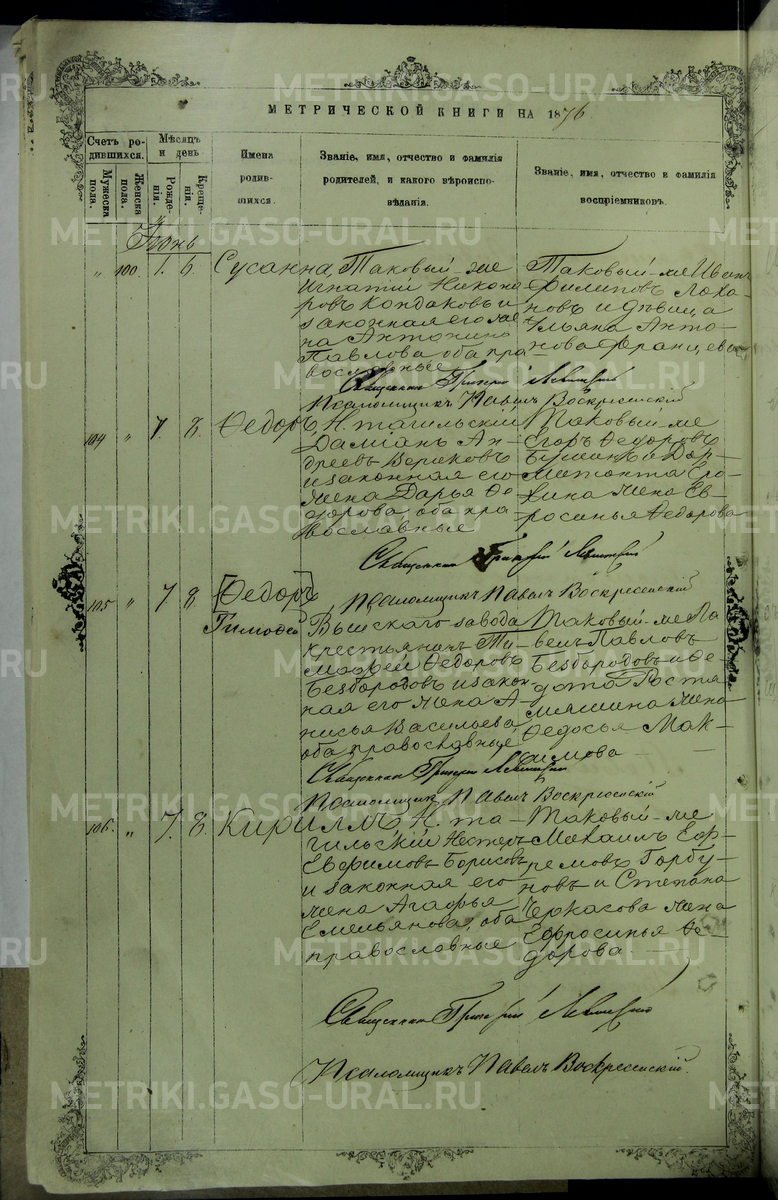 МЕТРИЧЕСКОЙ КНИГИ НА 1876
Счетъ родившихся.
Мужеска пола.
Женска пола.
Мѣсяцъ и день
Рожденія.
Крещенія.
Имена родившихся.
Званіе, имя, отчество и фамилія родителей, и какого вѣроисповѣданія.
Званіе, имя, отчество и фамилія воспріемниковъ.
Іюнь
„ 100. 1. 6. Сусанна, Таковый-же
Игнатій Никоно-
ровъ Кондаковъ и
законная его же-
на Антонина
Павлова оба пра-
вославные
Таковый-же Иванъ
Филиповъ Лоха-
новъ и дѣвица
Ульяна Анто-
нова
Священникъ Григорій Левитскій
Псаломщикъ Павелъ Воскресенскій
104 „ 7. 8. Ѳедоръ, Н. тагильскій
Даміанъ Ан-
дреевъ
и законная его
жена Дарья Ѳе-
дорова, оба пра-
вославные
Таковый-же
Егоръ Ѳедоровъ
жена Ев-
росинья Ѳедорова
Священникъ Григорій Левитскій
Псаломщикъ Павелъ Воскресенскій
105 „ 7 8. [Ѳедоръ]
Тимоѳей
Выйскаго завода
крестьянинъ Ти-
моѳей Ѳедоровъ
Безбородовъ и закон-
ная его жена А-
нисья Васильева
оба православные
Таковый-же Па-
велъ Павловъ
Безбородовъ и Ѳе-
дота
жена
Ѳедосья Мак-
симова
Священникъ Григорій Левитскій
Псаломщикъ Павелъ Воскресенскій
106. „ 7. 8. Кириллъ, Н. та-
гильскій Нестеръ
Евфимовъ Борисовъ
и законная его
жена Агафья
Емельянова, оба
православные
Таковый-же
Михаилъ Еф-
ремовъ Горбу-
новъ и Степана
Черкасова жена
Ефросинья Ѳе-
дорова
Священникъ Григорій Левитскій
Псаломщикъ Павелъ Воскресенскій.
METRIKI.GASO-URAL.RU